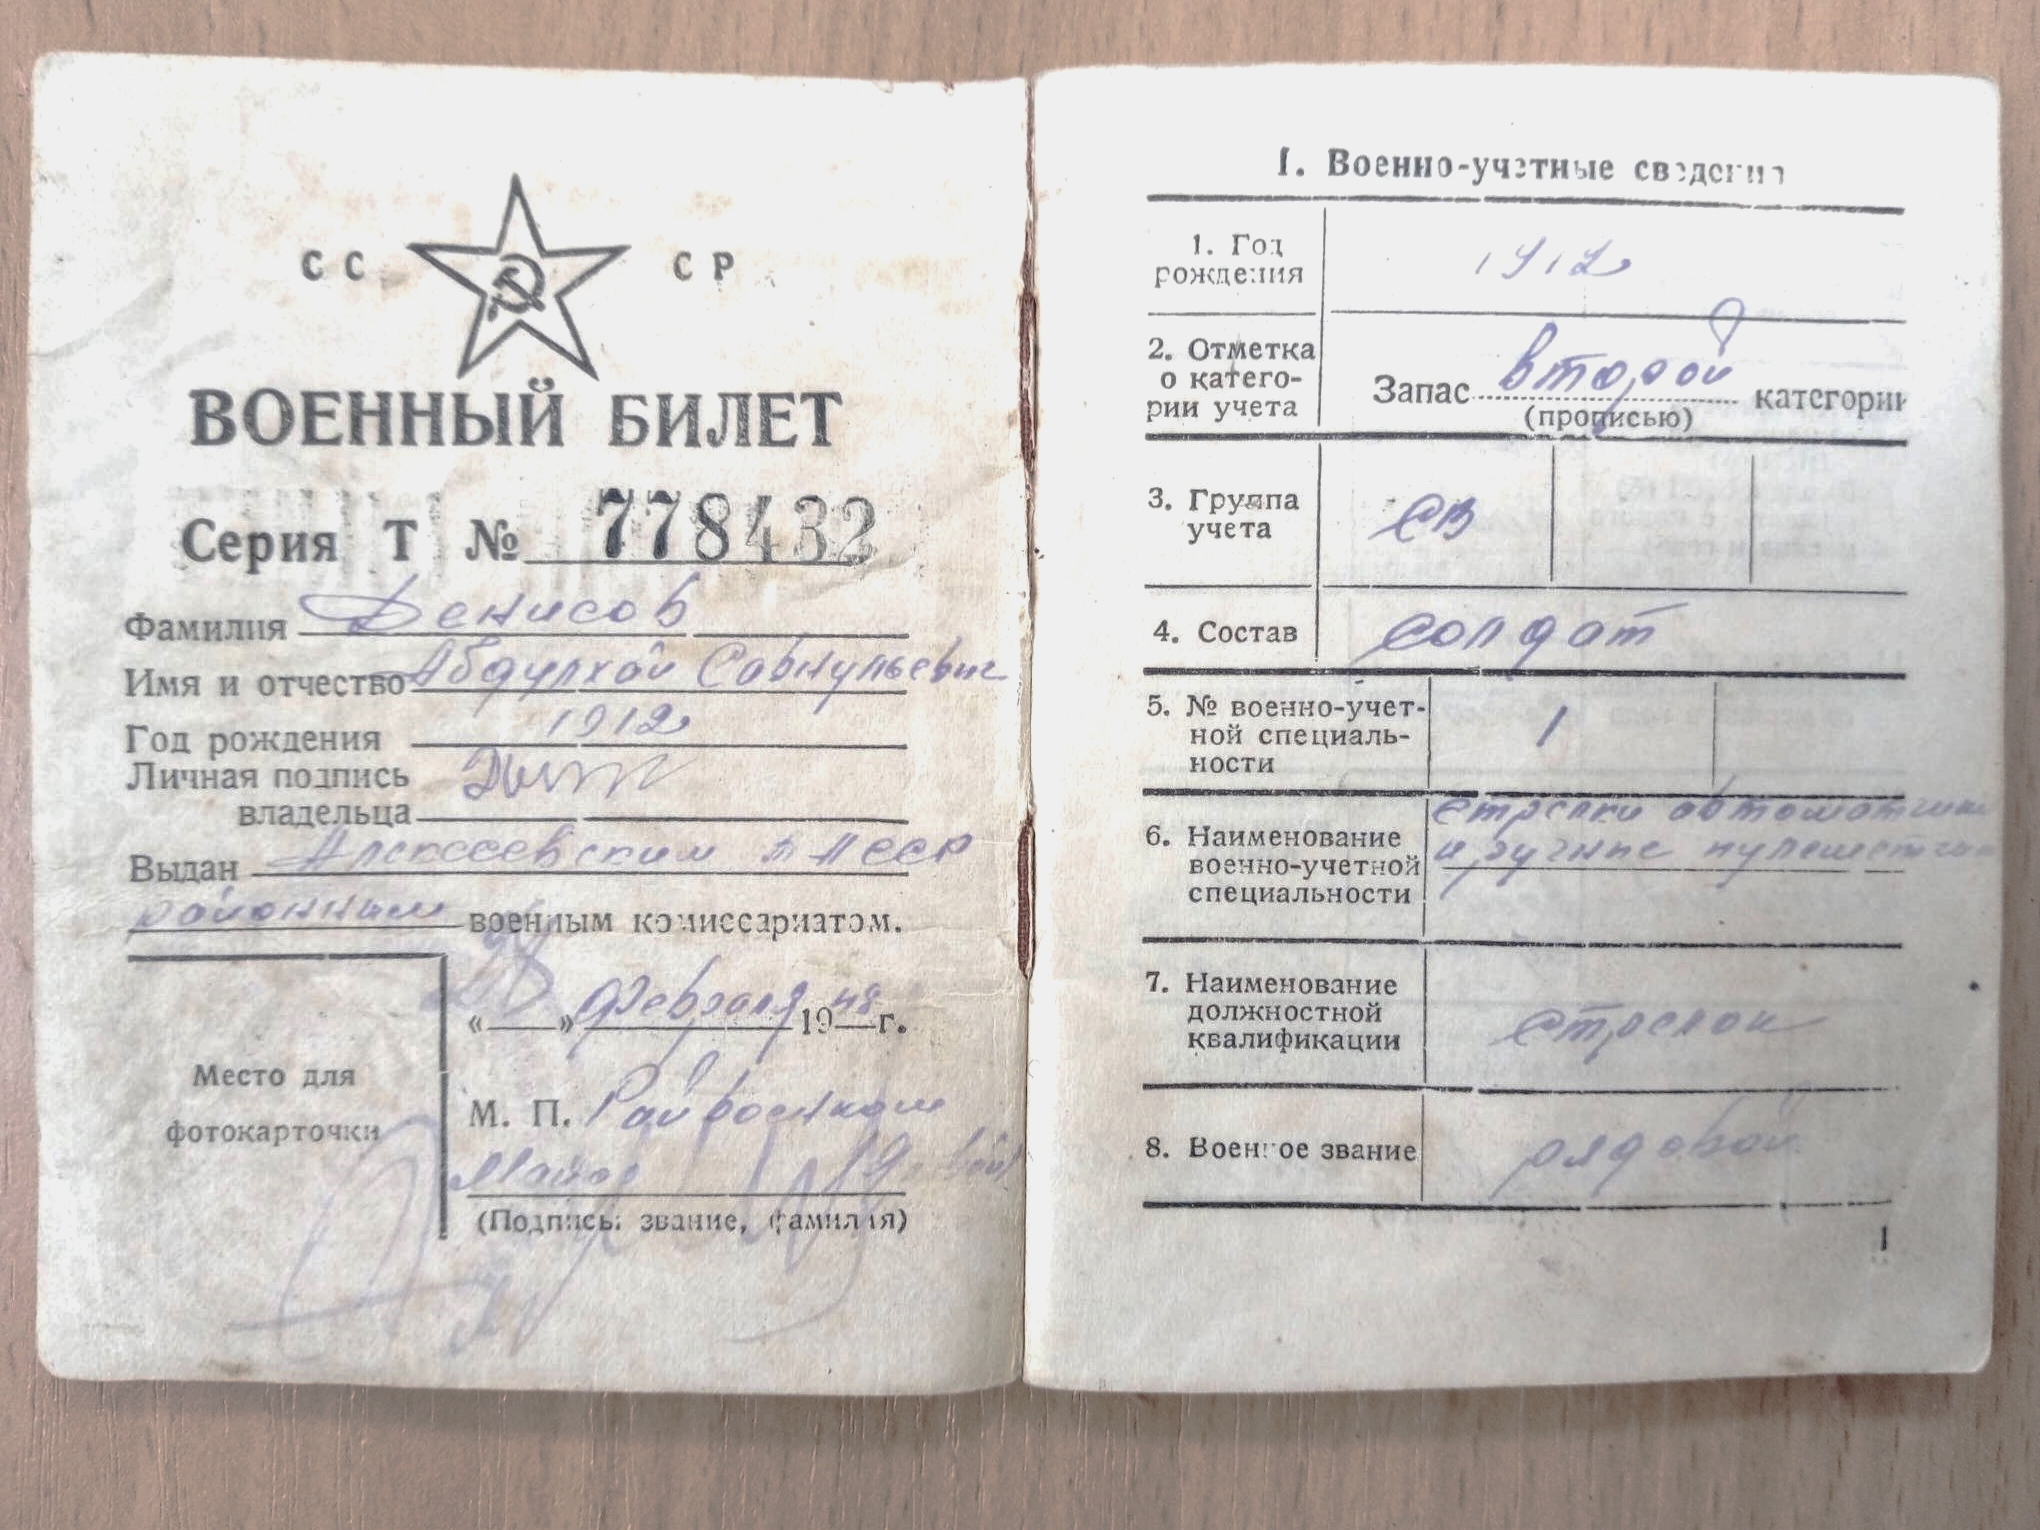 СС СР
ВОЕННЫЙ БИЛЕТ
Серия Т № 778432
Фамилия Денисов
Имя и отчество Абдулхай
Год рождения 1912
Личная подпись
владельца
Выдан Алексеевским ТАССР
районным военным комиссариатом.
« 28 » февраля 1948 г.
Место для
фотокарточки
М. П. Райвоенком
Майор
(Подпись, звание, фамилия)
I. Военно-учетные сведения
1. Год
рождения
1912
2. Отметка
о катего-
рии учета
Запас второй категории
(прописью)
3. Группа
учета
СВ
4. Состав солдат
5. № военно-учет-
ной специаль-
ности
1
6. Наименование
военно-учетной
специальности
стрелки автоматчики
и ручные пулеметчики
7. Наименование
должностной
квалификации
стрелок
8. Военное звание рядовой
1